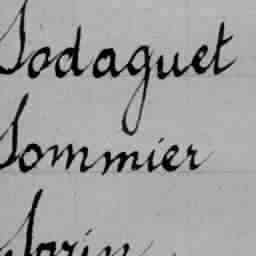 Sodaguet
Sommier